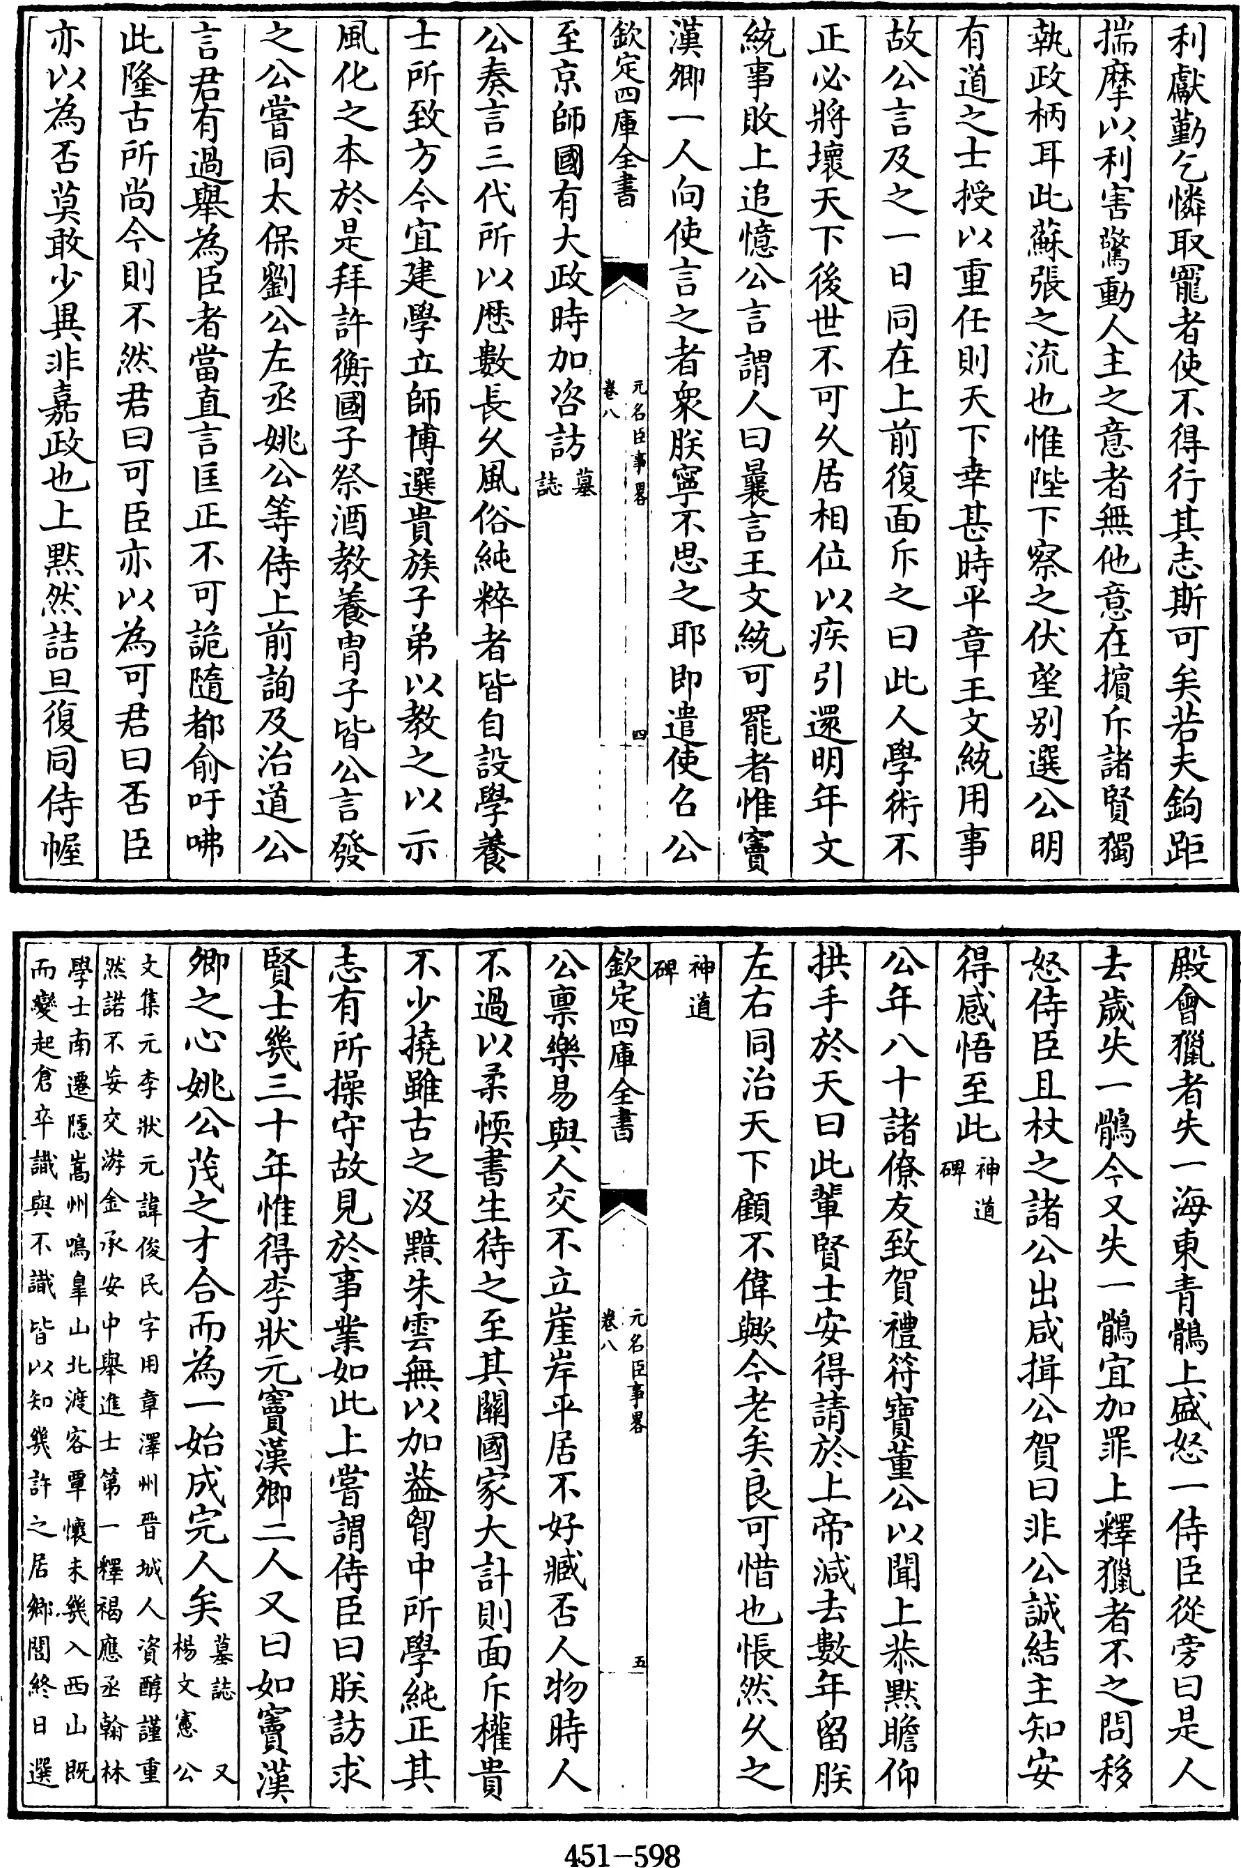 利獻勤乞憐取寵者使不得行其志斯可矣若夫鉤距
揣摩以利害驚動人主之意者無他意在擯斥諸賢獨
執政柄耳此蘇張之流也惟陛下察之伏望别選公明
有道之士授以重任則天下幸甚時平章王文統用事
故公言及之一日同在上前復面斥之曰此人學術不
正必將壞天下後世不可久居相位以疾引還明年文
統事敗上追憶公言謂人曰曩言王文統可罷者惟竇
漢卿一人向使言之者衆朕寧不思之耶即遣使召公
欽定四庫全書
元名臣事畧
卷八
四
至京師國有大政時加咨訪墓誌
公奏言三代所以厯數長久風俗純粹者皆自設學養
士所致方今宜建學立師博選貴族子弟以教之以示
風化之本於是拜許衡國子祭酒教養胄子皆公言發
之公嘗同太保劉公左丞姚公等侍上前詢及治道公
言君有過舉為臣者當直言匡正不可詭隨都俞吁咈
此隆古所尚今則不然君曰可臣亦以為可君曰否臣
亦以為否莫敢少異非嘉政也上黙然詰旦復同侍幄
殿會獵者失一海東青鶻上盛怒一侍臣從旁曰是人
去歲失一鶻今又失一鶻宜加罪上釋獵者不之問移
怒侍臣且杖之諸公出咸揖公賀曰非公誠結主知安
得感悟至此神道碑
公年八十諸僚友致賀禮符寶董公以聞上恭黙瞻仰
拱手於天曰此輩賢士安得請於上帝減去數年留朕
左右同治天下顧不偉歟今老矣良可惜也悵然久之
神道碑
欽定四庫全書
元名臣事畧
卷八
五
公禀樂易與人交不立崖岸平居不好臧否人物時人
不過以柔愞書生待之至其關國家大計則面斥權貴
不少撓雖古之汲黯朱雲無以加益胷中所學純正其
志有所操守故見於事業如此上嘗謂侍臣曰朕訪求
賢士幾三十年惟得李狀元竇漢卿二人又曰如竇漢
卿之心姚公茂之才合而為一始成完人矣墓誌 又楊文憲公
文集元李狀元諱俊民字用章澤州晉城人資醇謹重
然諾不妄交游金承安中舉進士第一釋褐應丞翰林
學士南遷隱嵩州鳴臯山北渡客覃懷未幾入西山既
而變起倉卒識與不識皆以知幾許之居鄉閭終日選
451-598